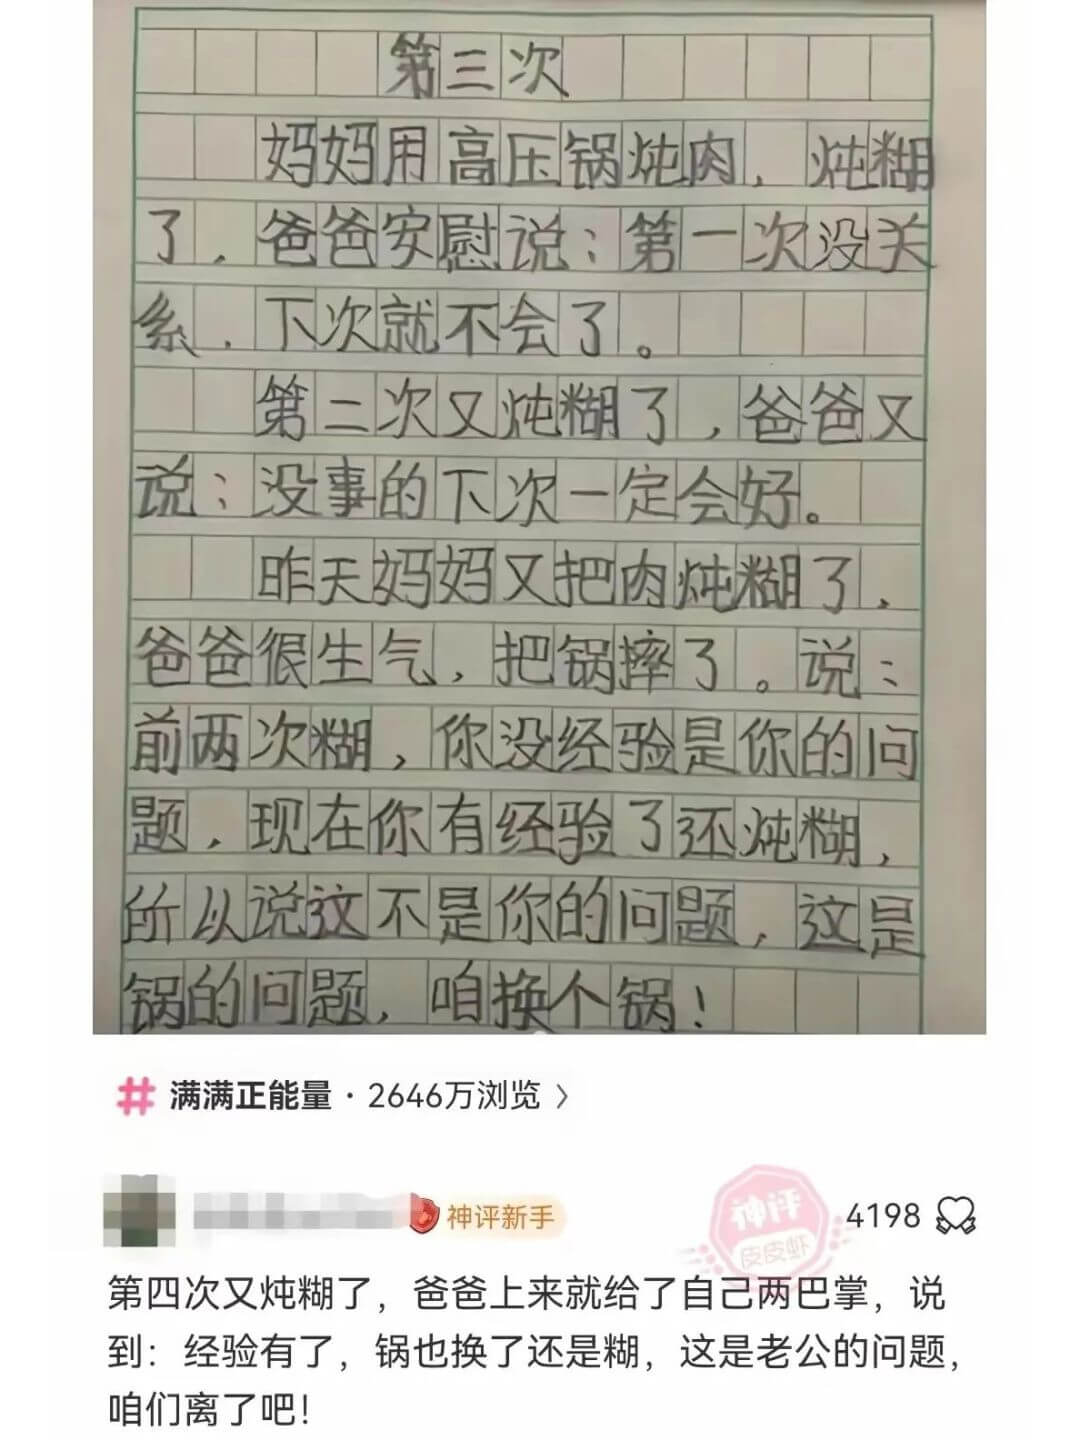 第三次
妈妈用高压锅炖肉，炖糊
了，爸爸安慰说：第一次没关
系，下次就不会了。
第二次又炖糊了，爸爸又
说：没事的下次一定会好。
昨天妈妈又把肉炖糊了，
爸爸很生气，把锅摔了。说：
前两次糊，你没经验是你的问
题，现在你有经验了还炖糊，
所以说这不是你的问题，这是
锅的问题，咱换个锅！
# 满满正能量 · 2646万浏览 >
神评新手
神评
皮皮虾
4198
第四次又炖糊了，爸爸上来就给了自己两巴掌，说
到：经验有了，锅也换了还是糊，这是老公的问题，
咱们离了吧！